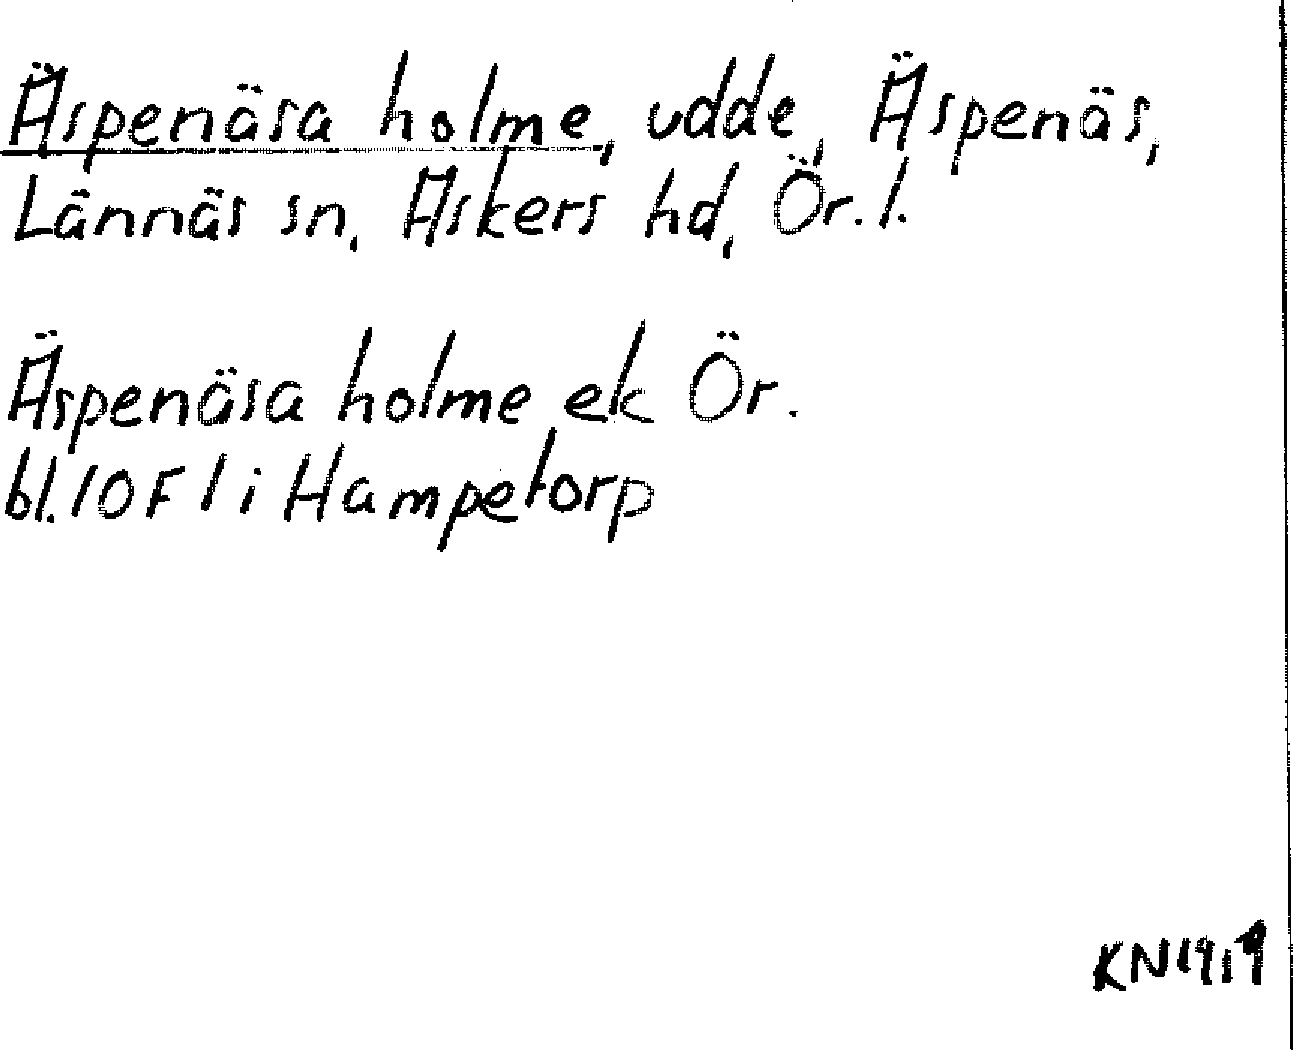 Äspenäsa holme, udde, Äspenäs,
Lännäs sn, Askers hd, Ör. l.
Äspenäsa holme ek Ör.
bl. 10 F 1 i Hampetorp
KN 1919